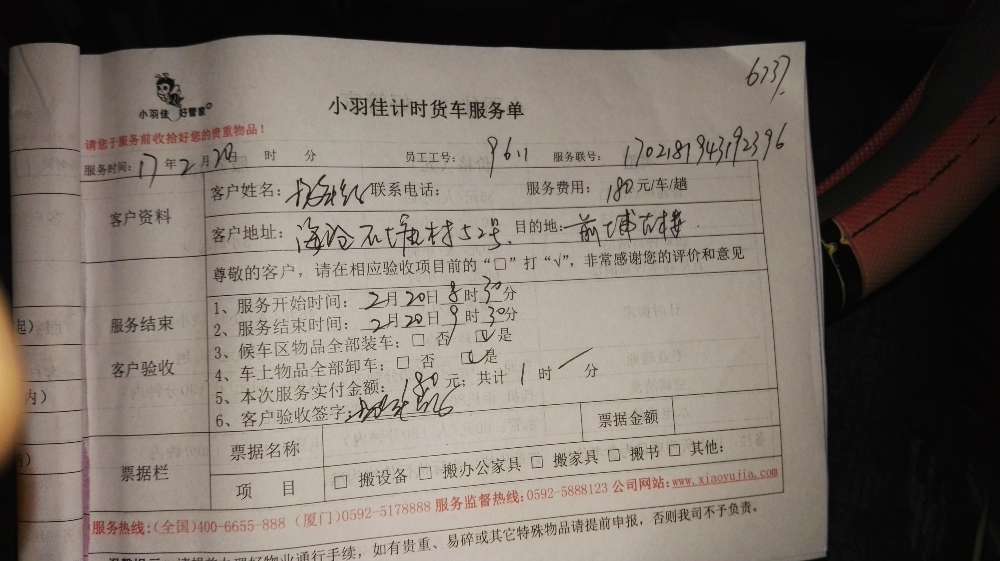 6237.
小羽佳 好管家
小羽佳计时货车服务单
请您于服务前收拾好您的贵重物品！
服务时间：17年2月20日 时 分 员工工号：9611 服务联号：1702181943192396
客户资料
客户姓名： 联系电话： 服务费用：180元/车/趟
客户地址：海沧石塘村52号. 目的地：前埔古楼
尊敬的客户，请在相应验收项目前的“□”打“√”，非常感谢您的评价和意见
服务结束
客户验收
1、服务开始时间：2月20日8时30分
2、服务结束时间：2月20日9时30分
3、候车区物品全部装车：□ 否 ☑是
4、车上物品全部卸车：□ 否 ☑是
5、本次服务实付金额：180元；共计1时 / 分
6、客户验收签字：
票据栏
票据名称 票据金额
项 目 □ 搬设备 □ 搬办公家具 □ 搬家具 □ 搬书 □ 其他：
服务热线：(全国)400-6655-888 （厦门)0592-5178888 服务监督热线：0592-5888123 公司网站：www.xiaoyujia.com
物业通行手续，如有贵重、易碎或其它特殊物品请提前申报，否则我司不予负责。